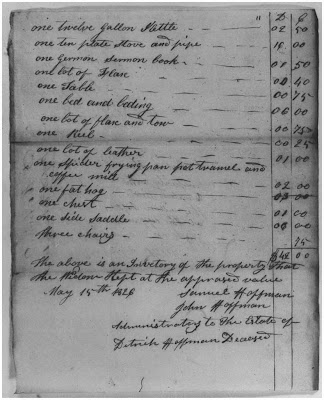 " D C
one twelve gallon Kettle — 02 50
one ten plate Stove and pipe — 18 00
one German Sermon book - — 01 50
one lot of Flax — 00 40
one Table — 00 75
one bed and beding — 06 00
one lot of flax and tow — 00 75
one Reel — 00 25
one lot of leather — 01 00
one Spider frying pan pot tramel and
coffee mill — 02 00
one fat hog — 03 00
one chest — 01 00
one Side Saddle — 06 00
three chairs — 75
$ 00
The above is an Invetory of the property that
the Widow Kept at the appraised value
May 15th 1826 Samuel Hoffman
John Hoffman
Administrators to the Estate of
Ditrich Hoffman Deceased